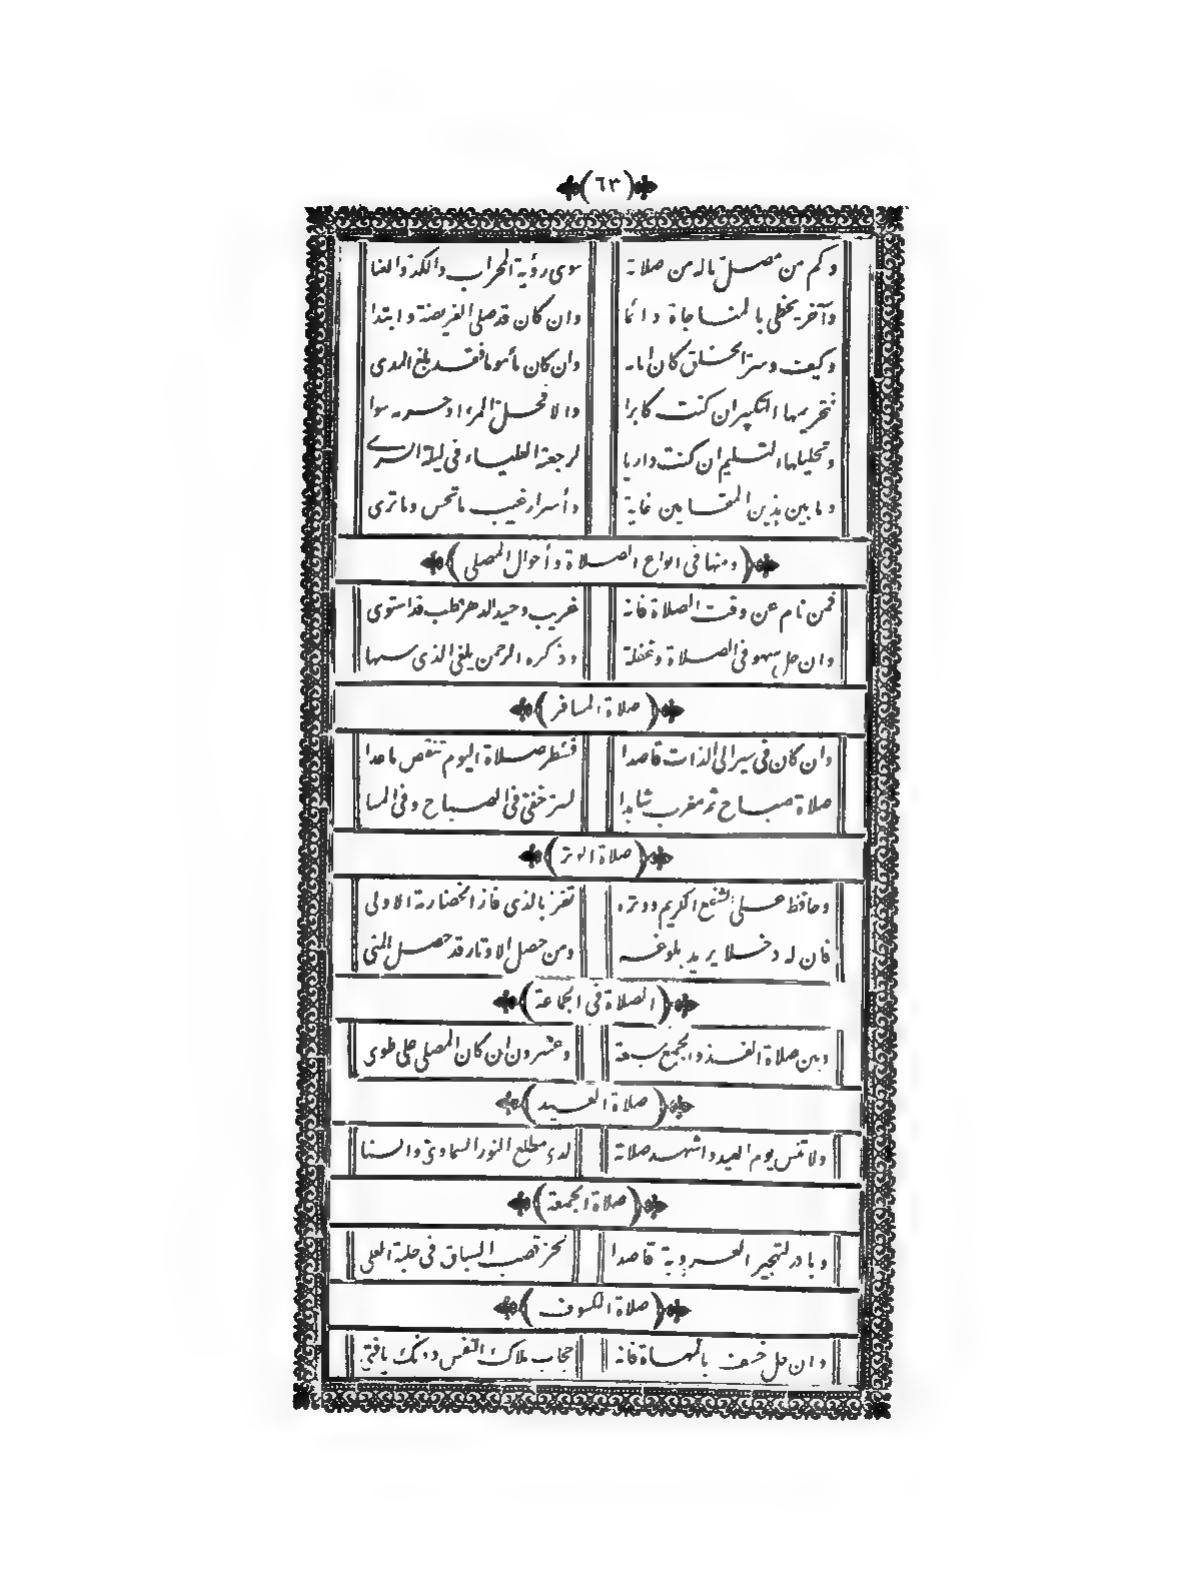 (٦٣)
وكم من مصل ماله من صلاته سوى رؤية المحراب والكد والعنا
وآخر يحظى بالمناجاة دائما وان كان قد صلى الفريضة وابتدا
وكيف وسر الحق كان امامه وان كان مأموما فقد بلغ المدى
فتحريمها التكبير ان كنت كابرا والا فحل المرء او حرمه سوا
وتحليلها التسليم ان كنت داريا لرجعته العلياء فى ليلة السرى
وما بين هذين المقامين غاية وأسرار غيب ما تحس وما ترى
(ومنها فى انواع الصلاة وأحوال المصلى)
فمن نام عن وقت الصلاة فانه غريب وحيد الدهر قطب قد استوى
وان حل سهو فى الصلاة وغفلة وذكره الرحمن يلغى الذى سها
(صلاة المسافر)
وان كان فى سير الى الذات قاصدا فشطر صلاة اليوم تنقص ما عدا
صلاة صباح ثم مغرب شاهدا لسر خفى فى الصباح وفى المسا
(صلاة الوتر)
وحافظ على الشفع الكريم ووتره تفز بالذى فاز الحضارمة الاولى
فان له دخلا يريد بلوغه ومن حصل الاوتار قد حصل المنى
(الصلاة فى الجماعة)
وبين صلاة الفذ والجمع سبعة وعشرون ان كان المصلى على طوى
(صلاة العيد)
ولا تنس يوم العيد واشهد صلاته لدى مطلع النور السماوى والسنا
(صلاة الجمعة)
وبادر لتهجير العروبة قاصدا تحز قصب السباق فى حلبة العلى
(صلاة الكسوف)
وان حل خسف بالمهاة فانه حجاب ملاك النفس دونك يا فتى